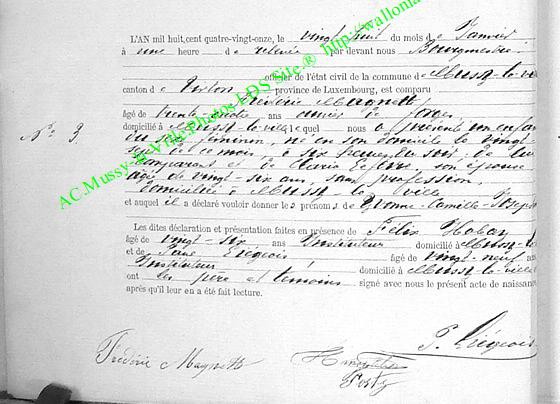 L'AN mil huit cent quatre-vingt-onze, le vingt huit du mois de Janvier
à une heure de relevée par devant nous Bourgmestre
officier de l'état civil de la commune de Mussy-la-ville
canton de Virton province de Luxembourg, est comparu
Frédéric Magnette
âgé de trente quatre ans ouvrier de forges
domicilié à Mussy-la-ville lequel nous a présenté un enfant
N° 3
du sexe féminin, né en son domicile le vingt-
sept de ce mois, à six heures du soir, de lui
comparant et de son épouse
âgé de vingt-six ans, sans profession,
domiciliée à Mussy-la-ville
et auquel il a déclaré vouloir donner les prénoms de Yvonne-Camille-Joseph
Les dites déclaration et présentation faites en présence de Félix
âgé de vingt-six ans Instituteur domicilié à Mussy-la-
et de Liégeois âgé de vingt-neuf ans
Instituteur domicilié à Mussy-la-ville
ont les père et témoins signé avec nous le présent acte de naissance
après qu'il leur en a été fait lecture.
Frédéric Magnette
P. Liégeois
AC.Mussy-la-Ville Photos LDS Site ® http://wallonia